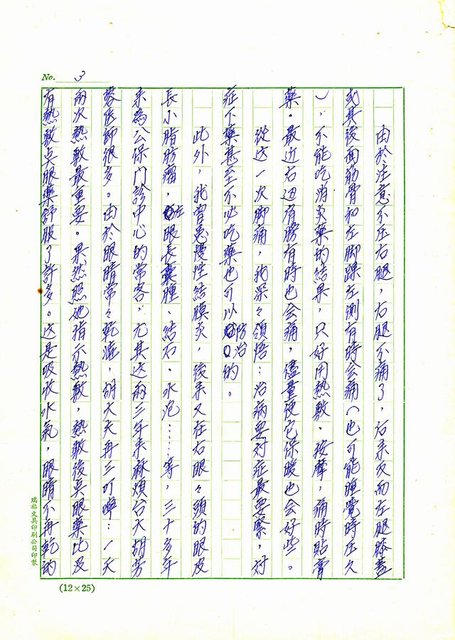 No. 3
由於注意不压右腿，右腿不痛了，后来反而左腿膝盖
或其後面筋骨和左脚踝左側有時会痛（也可能讀電時压久
），不能吃消炎藥的结果，只好用热敷。按摩，痛時貼膏
藥。最近右边肩膀有時也会痛，儘量使它保暖也会好些。
從这一次脚痛，我深々領悟：治病要对症最要緊，对
症下藥甚至不必吃藥也可以防治的。
此外，我曾患慢性结膜炎，後来又在右眼々頭的眼皮
長小脂肪瘤，左眼長囊腫、结石、水泡……等，三十多年
来為公保門診中心的常客，尤其这兩三年来麻煩台大胡芳
蓉医師很多。由於眼睛常々乾澀，胡大夫再三叮嚀：一天
兩次热敷最重要。果然照她指示热敷，热敷後点眼藥比没
有热敷点眼藥舒服了許多。这是吸收水氣，眼睛不再乾的
瑞裕文具印刷公司印製
(12×25)